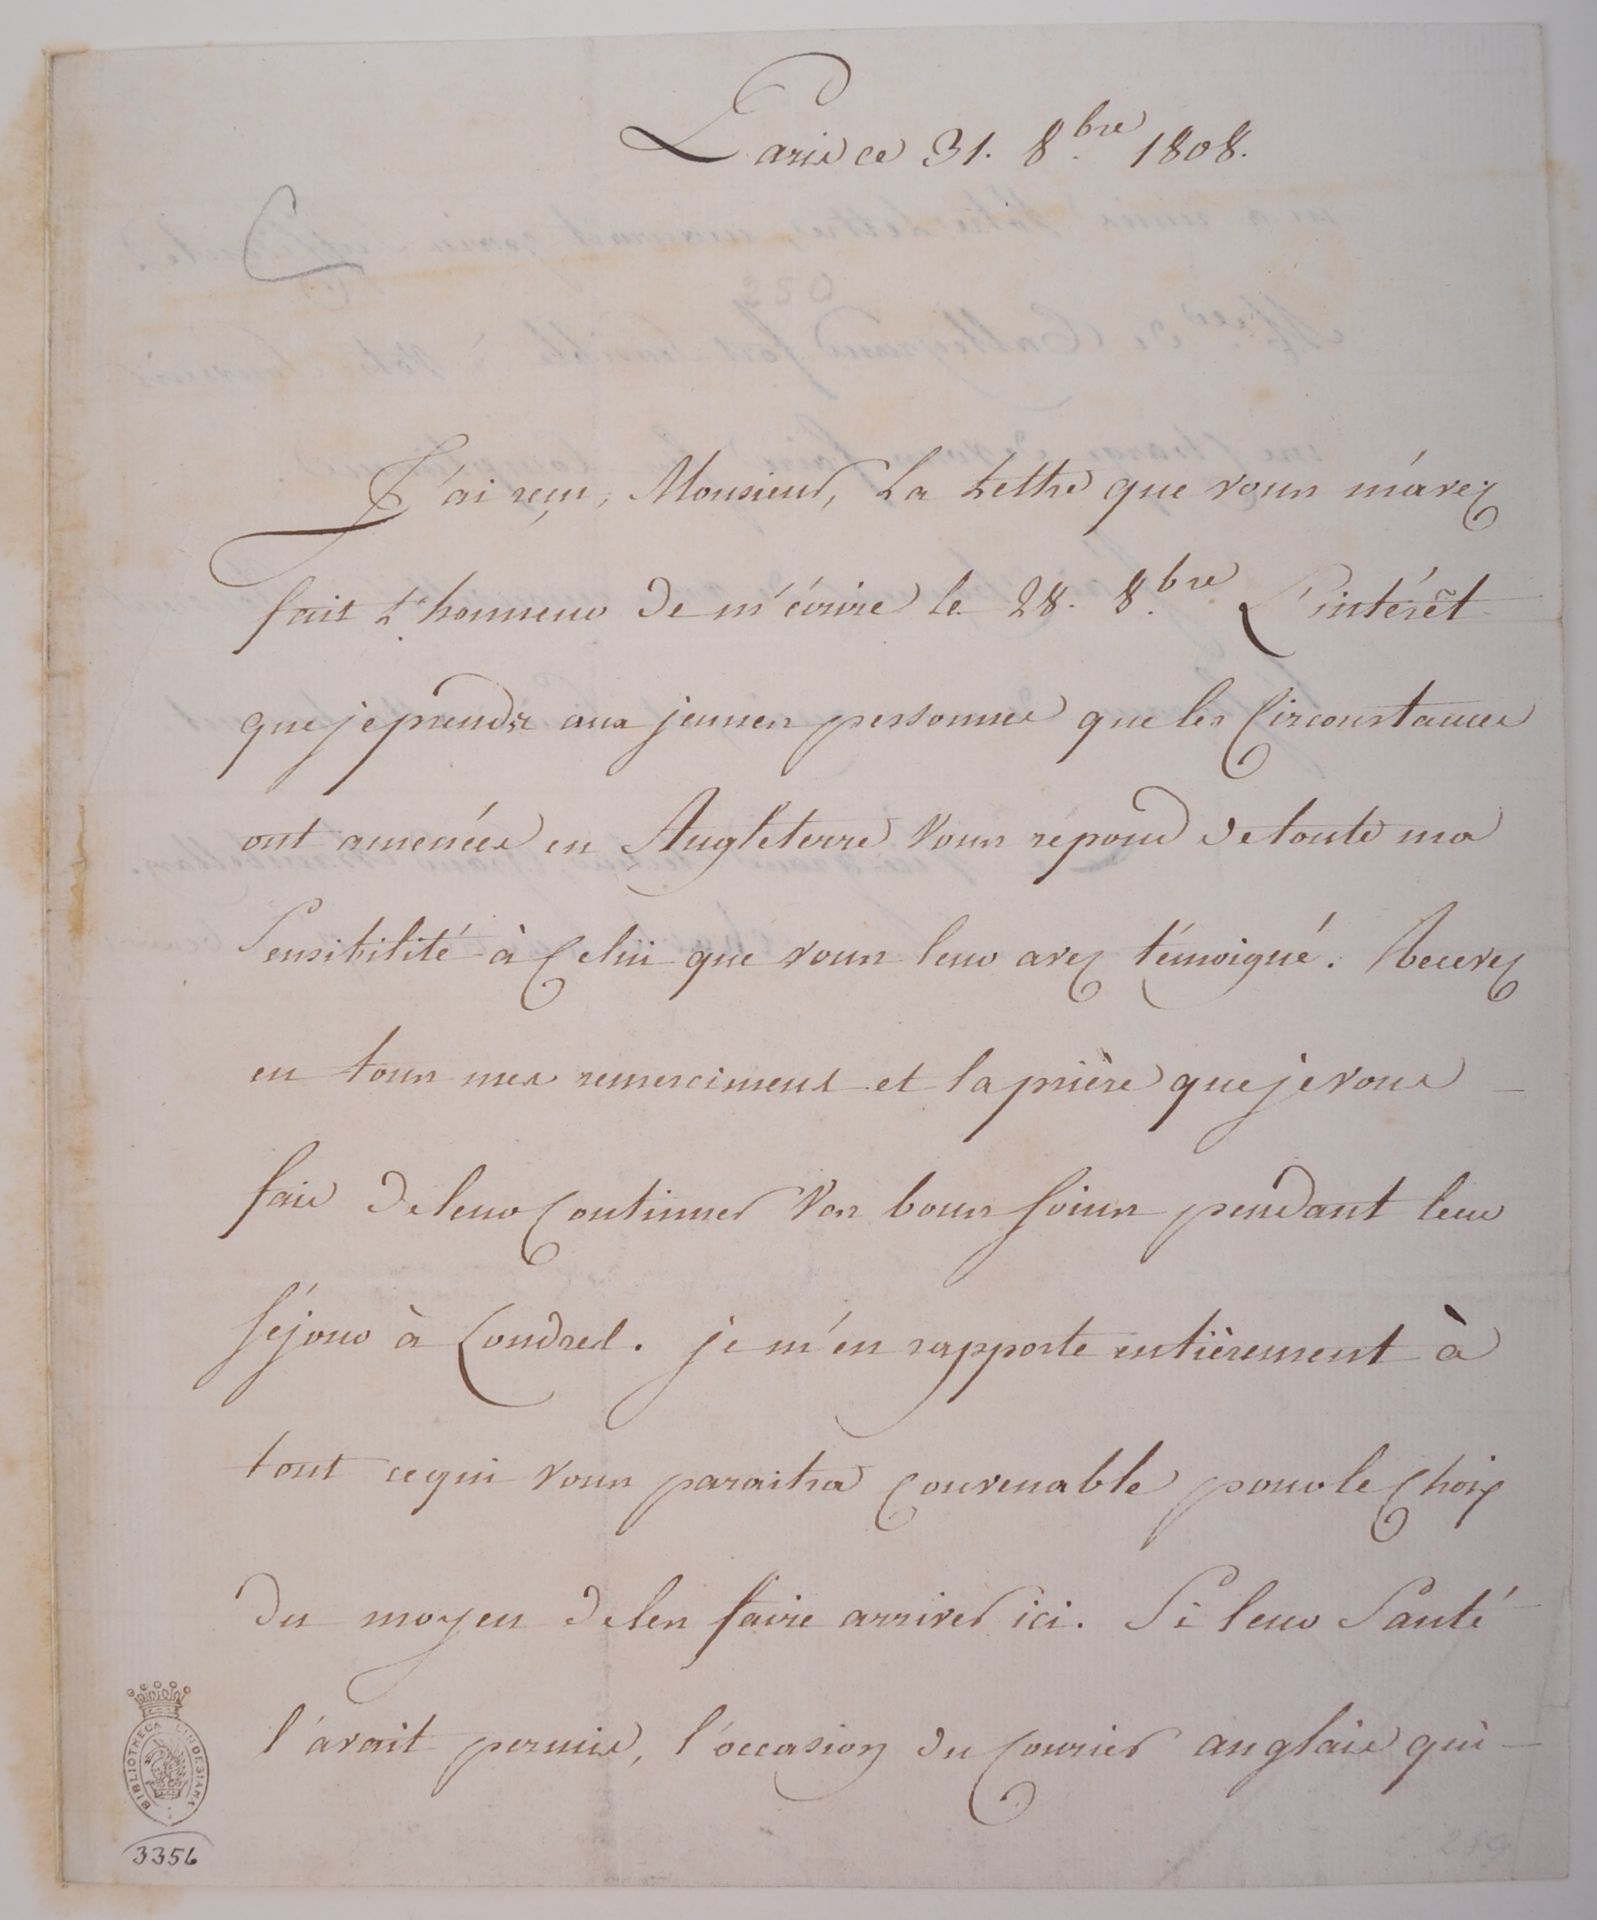 Paris ce 31. 8.bre 1808.
J'ai reçu, Monsieur, La Lettre que vous m'avez
fait L'honneur de m'écrire le 28. 8.bre L'intérêt
que je prends aux jeunes personnes que les Circonstances
ont amenées en Angleterre vous répond de toute ma
Sensibilité à Celui que vous leur avez témoigné. Recevez
en tous mes remerciments et la prière que je vous
fais de leur Continuer vos bons soins pendant leur
séjour à Londres. je m'en rapporte entièrement à
tout ce qui vous paraitra Convenable pour le Choix
du moyen de les faire arriver ici. Si leur Santé
l'avait permis, l'occasion du Courier anglais qui
BIBLIOTHECA LINDESIANA
3356
289